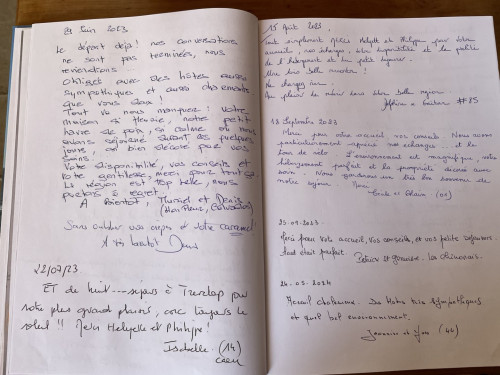 Juin 2023
Le départ déjà! nos conversations
ne sont pas terminées, nous
reviendrons.
Obligés avec des hôtes aussi
sympathiques et aussi charmants
que vous deux!
Tout va nous manquer: votre
maison si fleurie, notre petit
havre de paix, si calme où nous
avons séjourné durant ces quelques
jours, si bien décoré par vos
soins.
Votre disponibilité, vos conseils et
votre gentillesse, merci pour tout ça.
La région est trop belle, nous
A bientôt, Muriel et Denis
(Honfleur, Calvados)
Sans oublier vos crêpes et votre caramel!
A très bientôt Denis
22/07/23
ET de huit --- séjours à par
notre plus grand plaisir, avec toujours le
soleil!! Merci Helyette et Philippe!
Isabelle. (14)
Caen
15 Août 2023.
Tout simplement Merci Helyett et Philippe pour votre
accueil, nos échanges, votre disponibilité et la qualité
de l'hébergement et des petits déjeuners.
Une très belle aventure!
Ne changez rien
Au plaisir de revenir dans votre belle région.
Delphine et #85
18 Septembre 2023
Merci pour votre accueil, vos conseils. Nous avons
particulièrement apprécié nos échanges... et le
tour de vélo. L'environnement est magnifique, votre
hébergement parfait et la propriété décorée avec
soin. Nous garderons un très bon souvenir de
notre séjour. Merci
et Ghislain (02)
25.09.2023
Merci pour votre accueil, vos conseils, et vos petits déjeuners.
tout était parfait.
Patrice et
24.05.2024
Accueil chaleureux. Des hôtes très sympathiques
et quel bel environnement.
et Yves (44)